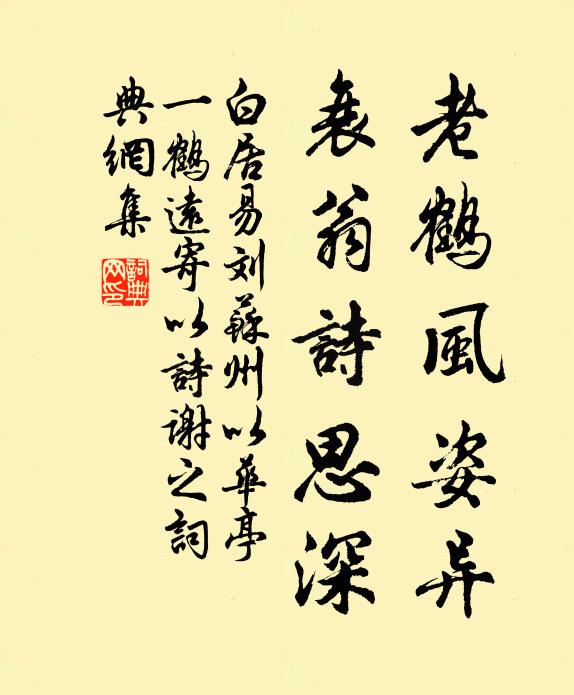 老鶴風姿异
衰翁詩思深
白居易刘蘇州以華亭
一鶴遠寄以詩谢之詞
典網集
詞典网印